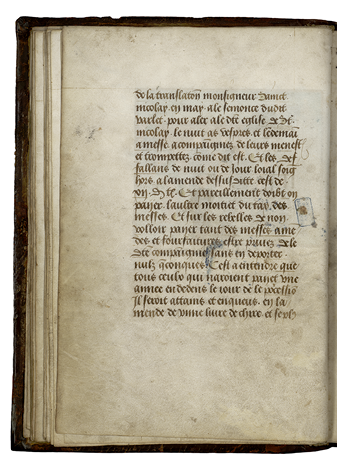 de la translaton monsigneur saint
nicolay en may. a le semonce dudit
varlet. pour aler a le dte eglise de st.
nicolay le nuit as vespres. et lendemai
a messe acompaigniez de leurs menest
et trompettez come dit est. Et les def
fallans de nuit ou de jour loial soig
hors a lamende dessusditte cest de
Et pareillement doibt on
paner laultre moitiet du tax des
messes. Et sur les rebelles et non
volloir paner tant des messes ame
des et fourfaitures estre privez de le
dte compaignie sans en deporter
nulz qconques. Cest a entendre que
tous ceulx qui naroient panet une
annee en dedens le jour de le pcessio
Il seroit attains et enqueus. en la
mende de une livre de chire. et se plz